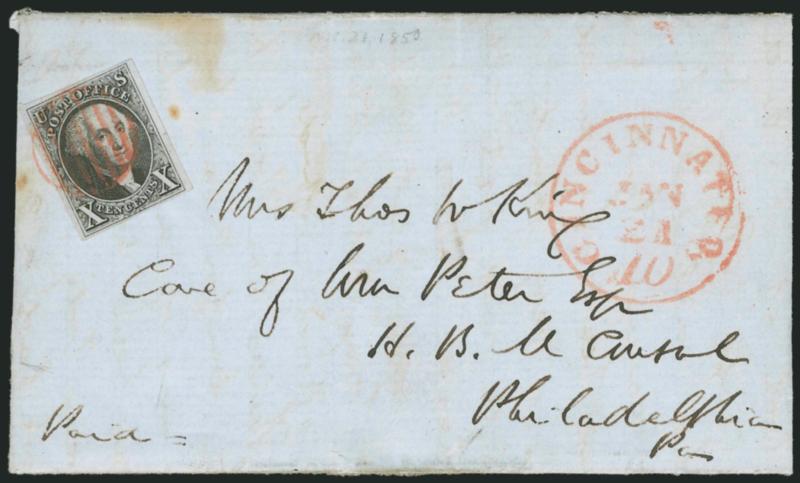 21, 1850
U S
POST OFFICE
X TEN CENTS X
CINCINNATI
JAN
21
10
Mrs Thos W King
Care of Wm Peter Esq
H. B. M Consul
Philadelphia
Pa
Paid =